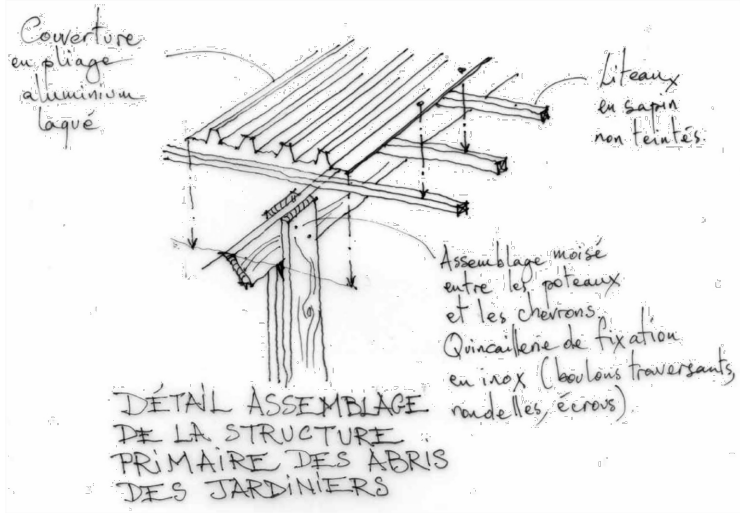 Couverture
en pliage
aluminium
laqué
Liteaux
en sapin
non teintés.
Assemblage moisé
entre les poteaux
et les chevrons.
Quincaillerie de fixation
en inox (boulons traversants,
rondelles, écrous).
DÉTAIL ASSEMBLAGE
DE LA STRUCTURE
PRIMAIRE DES ABRIS
DES JARDINIERS